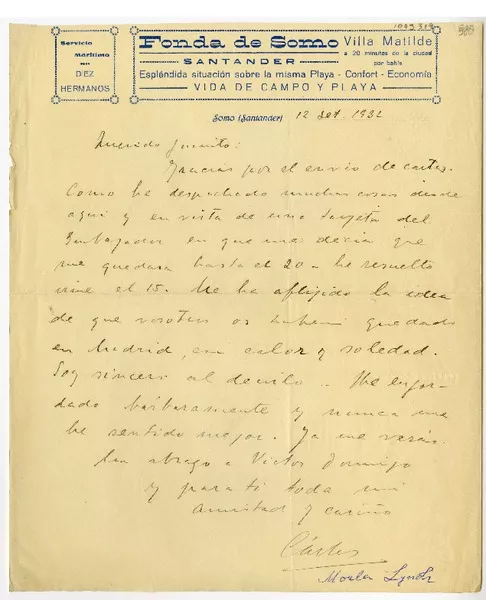 Servicio
marítimo
DIEZ
HERMANOS
Fonda de Somo
SANTANDER
Villa Matilde
a 20 minutos de la ciudad
por bahía
Espléndida situación sobre la misma Playa - Confort - Economía
VIDA DE CAMPO Y PLAYA
Somo (Santander) 12 Set. 1932
Querido Juanito:
Gracias por el envio de cartas.
Como he despachado muchas cosas desde
aqui y en vista de una tarjeta del
Embajador en que me decia que
me quedara hasta el 20 - he resuelto
irme el 15. Me ha afligido la idea
de que vosotros os habeis quedado
en Madrid, con calor y soledad.
Soy sincero al decirlo. He engor-
dado bárbaramente y nunca me
he sentido mejor. Ya me verás.
Un abrazo a Victor Domingo
y para ti toda mi
amistad y cariño
Carlos
Morla Lynch